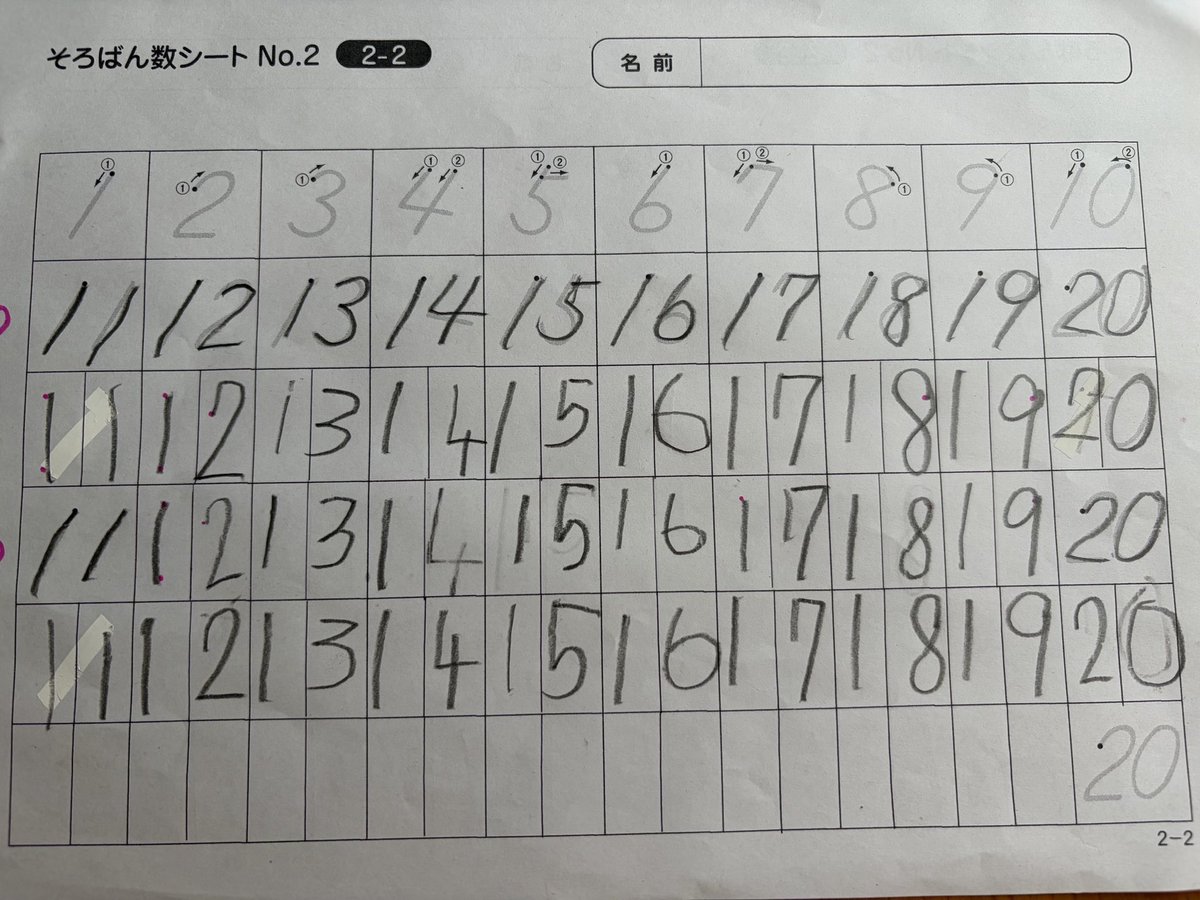 そろばん数シート No.2 2-2 名前
1 2 3 4 5 6 7 8 9 10
11 12 13 14 15 16 17 18 19 20
11 12 13 14 15 16 17 18 19 20
11 12 13 14 15 16 17 18 19 20
11 12 13 14 15 16 17 18 19 20
20
2-2